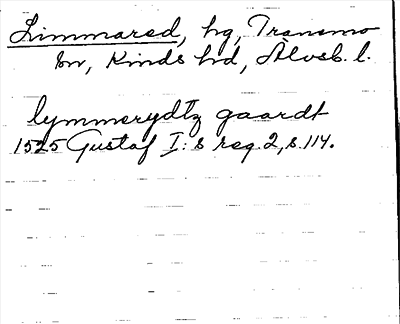 Limmared, hg, Tranemo
sn, Kinds hd, Älvsb. l.
lymmerydtz gaardt
1525 Gustaf I:s reg. 2, s. 114.